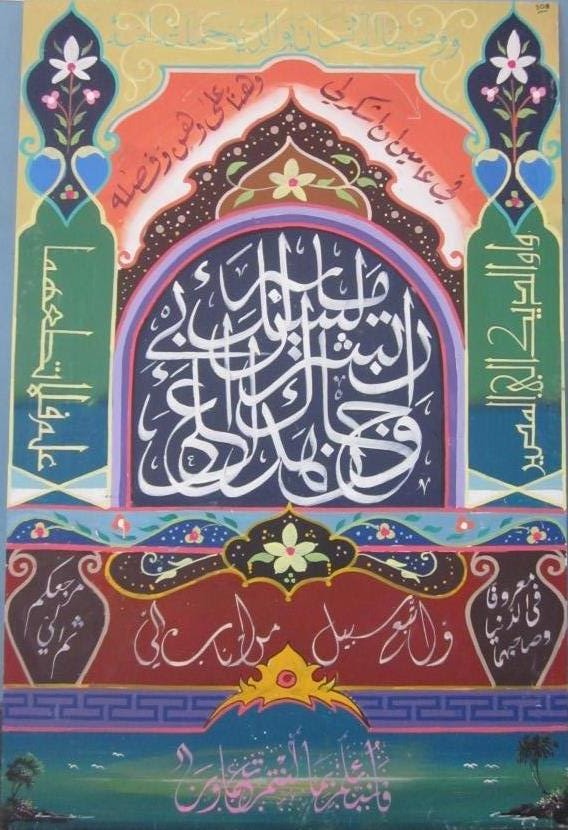 ووصينا الإنسان بوالديه حملته أمه
وهنا على وهن وفصله
في عامين ان اشكر لي
ولوالديك الي المصير
وان جاهداك على ان تشرك بي ما ليس لك به
علم فلا تطعهما
وصاحبهما
في الدنيا
معروفا
واتبع سبيل من اناب الي
ثم الي
مرجعكم
فأنبئكم بما كنتم تعملون
508